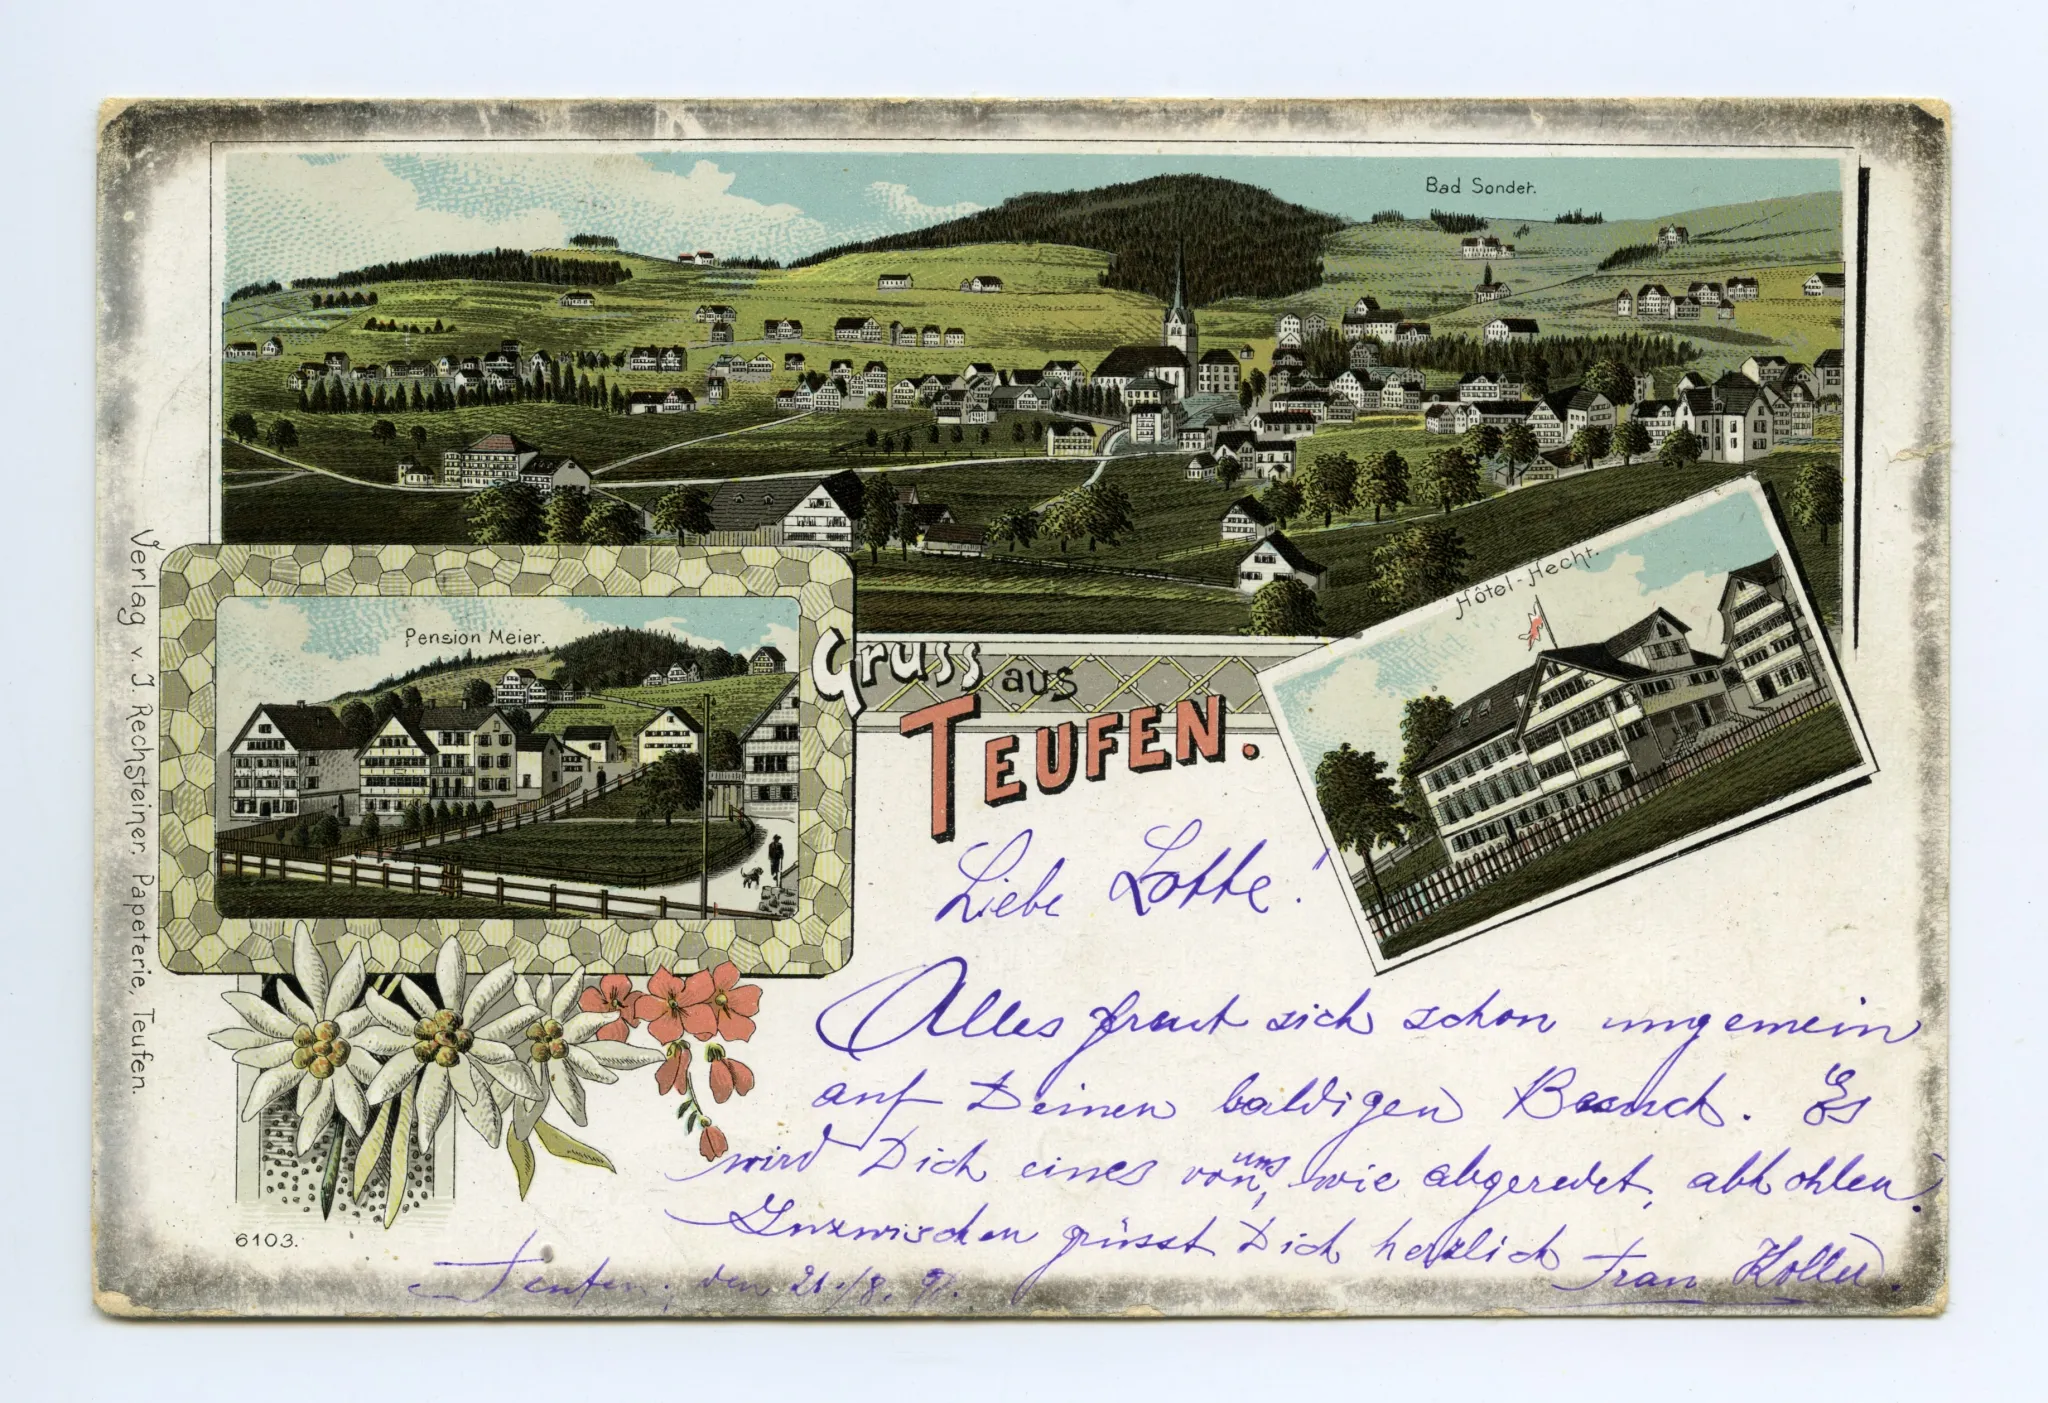 Bad Sonder.
Hôtel-Hecht.
Pension Meier.
Gruss aus
TEUFEN.
Verlag v. J. Rechsteiner, Papeterie, Teufen.
6103.
Liebe Lotte!
Alles freut sich schon ungemein
auf Deinen baldigen Besuch. Es
wird Dich eines von uns, wie abgeredet, abhohlen.
Inzwischen grüsst Dich herzlich Frau Koller.
Teufen, den 21./8.